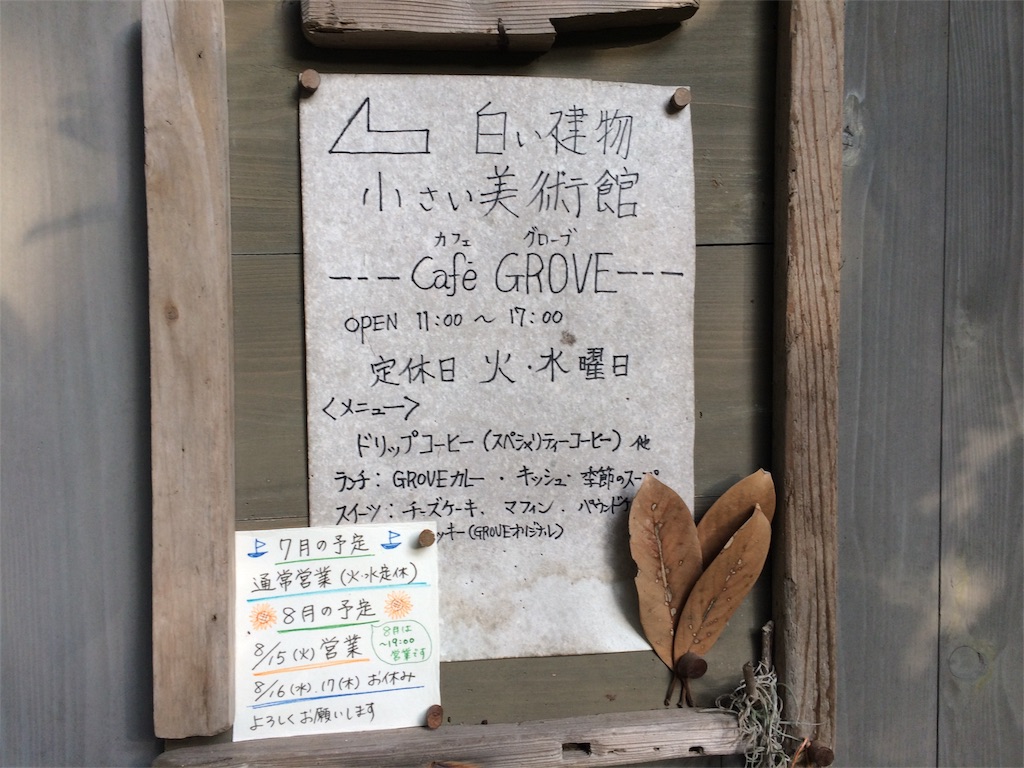 白い建物
小さい美術館
カフェ グローブ
--- Café GROVE ---
OPEN 11:00 ~ 17:00
定休日 火・水曜日
<メニュー>
ドリップコーヒー(スペシャリティーコーヒー)他
ランチ: GROVEカレー・キッシュ・季節のスープ
スイーツ: チーズケーキ、マフィン、パウンドケ
ッキー(GROVEオリジナル)
7月の予定
通常営業(火・水定休)
8月の予定
8/15(火)営業
8月は
~19:00
営業です
8/16(水)、17(木)お休み
よろしくお願いします